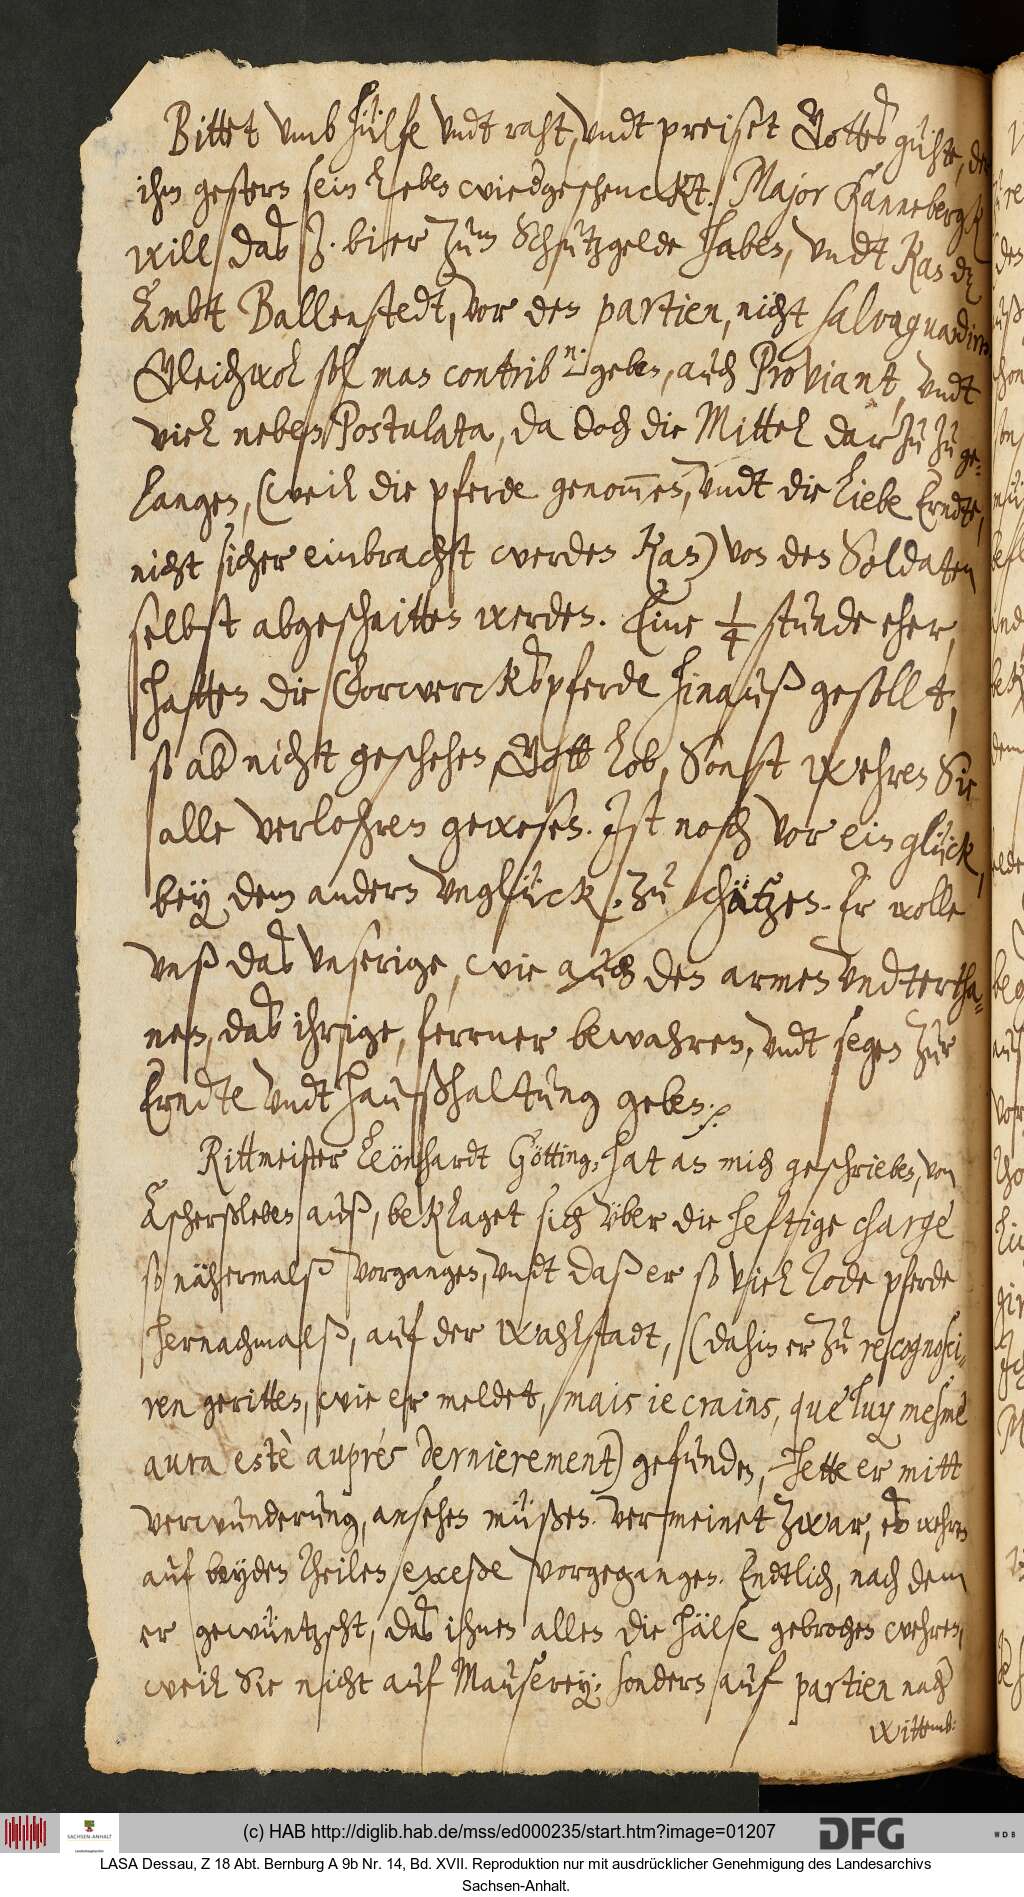 Bittet umb hülfe undt raht, undt preiset Gottes gühte, der
ihm gestern sein leben wiedergeschenckt. Major Kannebergk
will das Z. bier zum Schutzgelde haben, undt kan dz
Ambt Ballenstedt, vor den partien, nicht salvaguardiren
Gleichwol sol man contrib:n: geben, auch Proviant, undt
viel neben Postulata, da doch die Mittel darzu zu ge-
langen, (weil die pferde genommen, undt die liebe Erndte,
nicht sicher einbracht werden kan) von den Soldaten
selbst abgeschnitten werden. Eine 1/4 stunde eher,
hatten die Vorwerckspferde hinauß gesollt,
so aber nicht geschehen, Gott lob, Sonst wehren Sie
alle verlohren gewesen. Ist noch vor ein glück,
bey dem andern unglück, zu schätzen. Er wolle
unß das unserige, wie auch den armen Undtertha-
nen, das ihrige, ferrner bewahren, undt segen zur
Erndte undt haußhaltung geben.
Rittmeister Leonhardt Götting, hat an mich geschrieben, von
Ascherßleben auß, beklaget sich über die heftige charge
so nähermalß vorgangen, undt daß er so viel todte pferde
hernachmalß, auf der wahlstadt, (dahin er zu recognosci-
ren geritten, wie er meldet, mais ie crains, que luy mesme
aura estè auprés dernierement) gefunden, hette er mitt
verwunderung, ansehen müßen. vermeinet zwar, es wehren
auf beyden theilen exceße vorgegangen. Endtlich, nach dem
er gewüntzscht, das ihnen allen die hälse gebrochen wehren,
weil Sie nicht auf Mauserey, sondern auf partien nach
Wittemb:
(c) HAB http://diglib.hab.de/mss/ed000235/start.htm?image=01207
SACHSEN-ANHALT
DFG
WDB
LASA Dessau, Z 18 Abt. Bernburg A 9b Nr. 14, Bd. XVII. Reproduktion nur mit ausdrücklicher Genehmigung des Landesarchivs
Sachsen-Anhalt.